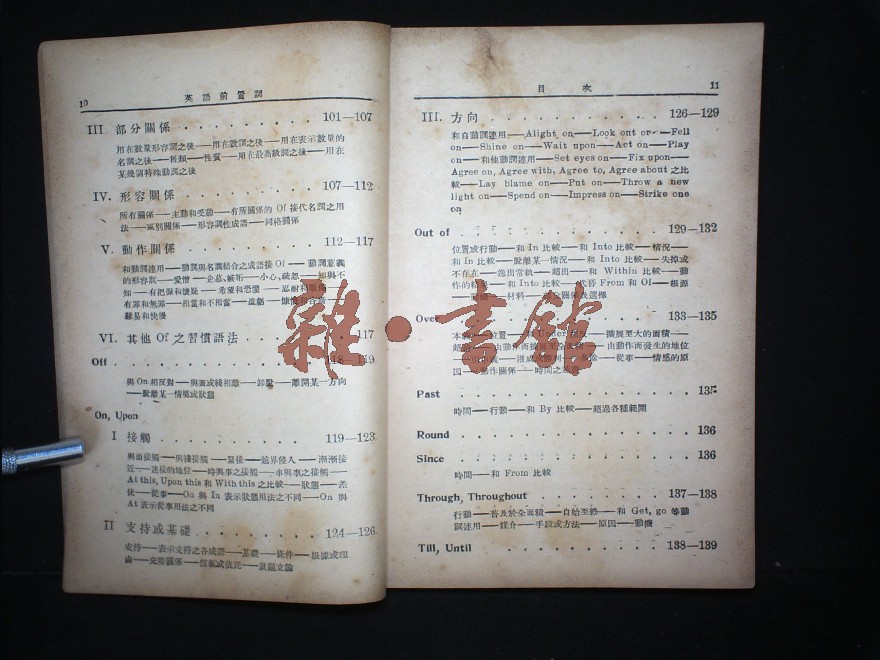 10 英語前置詞
III 部分關係 101—107
用在數量形容詞之後——用在數詞之後——用在表示數量的
名詞之後——種類——性質——用在最高級詞之後——用在
某幾個特殊動詞之後
IV. 形容關係 107—112
所有關係——主動和受動——有所關係的 Of 接代名詞之用
法——區別關係——形容詞性成語——同格關係
V. 動作關係 112—117
和動詞連用——動詞與名詞結合之成語接 Of——動詞意義
的形容詞——愛憎——小心,疏忽——知與不
知——有把握和懷疑——希望和恐懼——忍耐和
有罪和無罪——相當和不相當——慷慨和
難易和快慢
VI. 其他 Of 之習慣語法 117
Off 118—119
與 On 相反對——與面或綫相離——卸脫——離開某一方向
——脫離某一情境或狀態
On, Upon
I 接觸 119—123
與面接觸——與綫接觸——緊接——越界侵入——漸漸接
近——迷接的地位——時與事之接觸——事與事之接觸——
At this, Upon this 和 With this 之比較——狀態——差
使——從事——On 與 In 表示狀態用法之不同——On 與
At 表示從事用法之不同
II 支持或基礎 124—126
支持——表示支持之各成語——基礎——條件——根據或理
由——交際關係——信賴或依託——就題立論
目次 11
III. 方向 126—129
和自動詞連用——Alight on——Look ont or——Fell
on——Shine on——Wait upon——Act on——Play
on——和他動詞連用——Set eyes on——Fix upon——
Agree on, Agree with, Agree to, Agree about 之比
較——Lay blame on——Put on——Throw a new
light on——Spend on——Impress on——Strike one
on
Out of 129—132
位置或行動——和 In 比較——和 Into 比較——情況——
和 In 比較——脫離某一情況——和 Into 比較——失掉或
不存在——逸出常軌——超出——和 Within 比較——動
作的結果——和 Into 比較——代替 From 和 Of——根源
——材料——部分關係及選擇
Over 133—135
本義——位置——和 Under 相反——擴展至大的面積——
超過——由動作而擴展至全面積——由動作而發生的地位
——從事——情感的原
因——動作關係——時間之經過
Past 135
時間——行動——和 By 比較——超過各種範圍
Round 136
Since 136
時間——和 From 比較
Through, Throughout 137—138
行動——普及於全面積——自始至終——和 Get, go 等動
詞連用——媒介——手段或方法——原因——動機
Till, Until 138—139
雜·書館